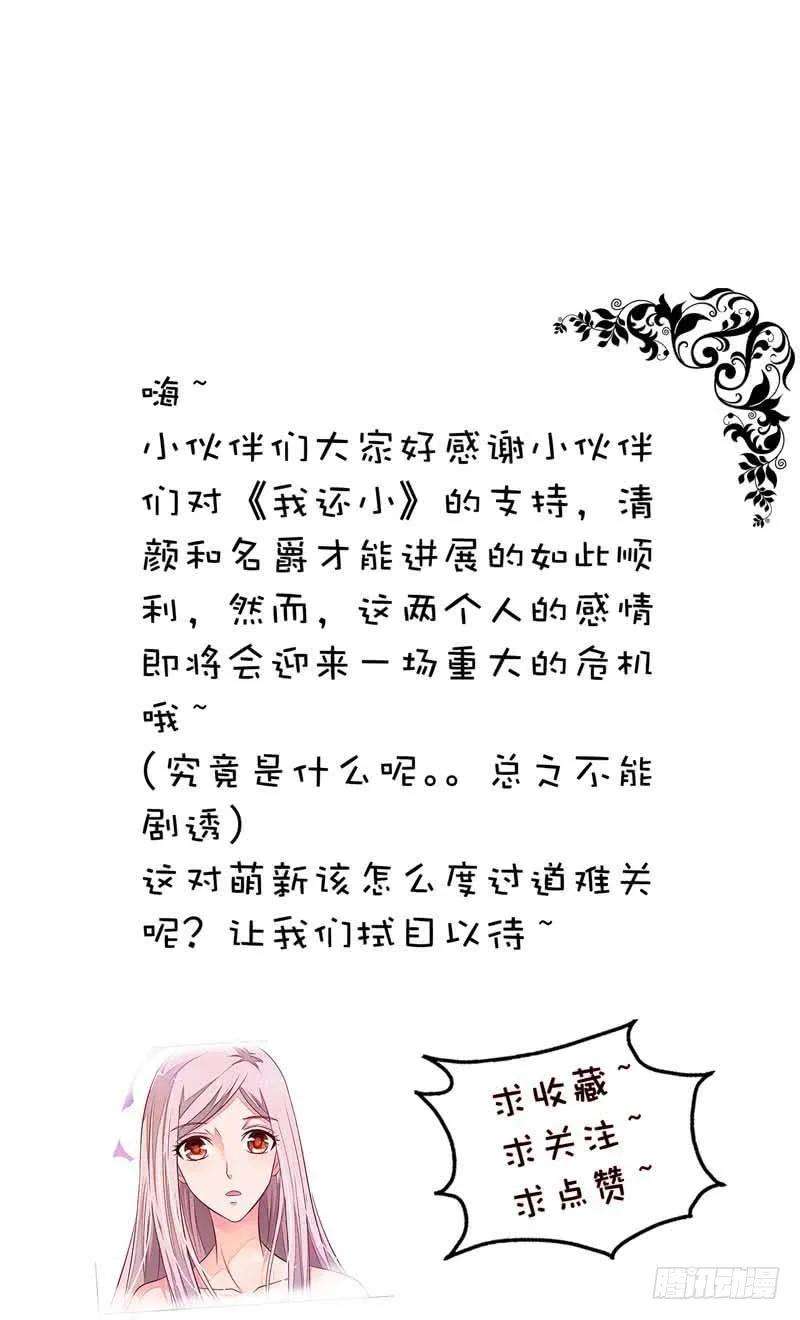 嗨~
小伙伴们大家好感谢小伙伴
们对《我还小》的支持，清
颜和名爵才能进展的如此顺
利，然而，这两个人的感情
即将会迎来一场重大的危机
哦~
(究竟是什么呢。。总之不能
剧透)
这对萌新该怎么度过道难关
呢？让我们拭目以待~
求收藏~
求关注~
求点赞~
腾讯动漫